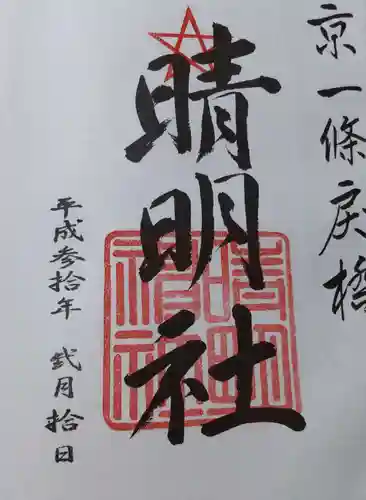 京一條戻橋
晴明社
晴明
神社
平成参拾年 弐月拾日